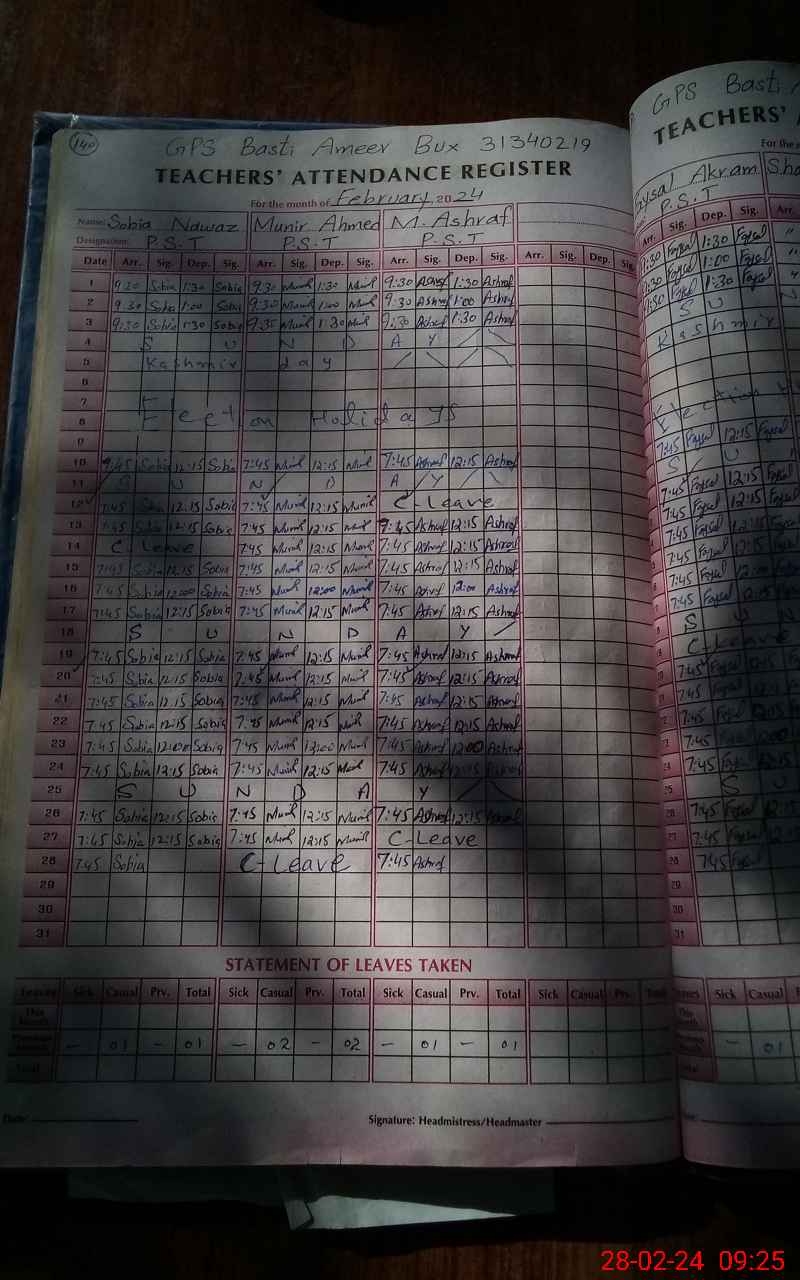 140
GPS Basti Ameer Bux 31340219
TEACHERS' ATTENDANCE REGISTER
For the month of February 2024
Name: Sobia Nawaz Munir Ahmed M. Ashraf
Designation: P.S.T P.S.T P.S.T
Date Arr. Sig. Dep. Sig. Arr. Sig. Dep. Sig. Arr. Sig. Dep. Sig. Arr. Sig. Dep. Sig.
1 9:30 Sobia 1:30 Sobia 9:30 Munir 1:30 Munir 9:30 Ashraf 1:30 Ashraf
2 9:30 Sobia 1:00 Sobia 9:30 Munir 1:00 Munir 9:30 Ashraf 1:00 Ashraf
3 9:30 Sobia 1:30 Sobia 9:30 Munir 1:30 Munir 9:30 Ashraf 1:30 Ashraf
4 S U N D A Y
5 Kashmir day
6
7
8 Election Holidays
9
10 7:45 Sobia 12:15 Sobia 7:45 Munir 12:15 Munir 7:45 Ashraf 12:15 Ashraf
11 S U N D A Y
12 7:45 Sobia 12:15 Sobia 7:45 Munir 12:15 Munir C-Leave
13 7:45 Sobia 12:15 Sobia 7:45 Munir 12:15 Munir 7:45 Ashraf 12:15 Ashraf
14 C-Leave 7:45 Munir 12:15 Munir 7:45 Ashraf 12:15 Ashraf
15 7:45 Sobia 12:15 Sobia 7:45 Munir 12:15 Munir 7:45 Ashraf 12:15 Ashraf
16 7:45 Sobia 12:00 Sobia 7:45 Munir 12:00 Munir 7:45 Ashraf 12:00 Ashraf
17 7:45 Sobia 12:15 Sobia 7:45 Munir 12:15 Munir 7:45 Ashraf 12:15 Ashraf
18 S U N D A Y
19 7:45 Sobia 12:15 Sobia 7:45 Munir 12:15 Munir 7:45 Ashraf 12:15 Ashraf
20 7:45 Sobia 12:15 Sobia 7:45 Munir 12:15 Munir 7:45 Ashraf 12:15 Ashraf
21 7:45 Sobia 12:15 Sobia 7:45 Munir 12:15 Munir 7:45 Ashraf 12:15 Ashraf
22 7:45 Sobia 12:15 Sobia 7:45 Munir 12:15 Munir 7:45 Ashraf 12:15 Ashraf
23 7:45 Sobia 12:00 Sobia 7:45 Munir 12:00 Munir 7:45 Ashraf 12:00 Ashraf
24 7:45 Sobia 12:15 Sobia 7:45 Munir 12:15 Munir 7:45 Ashraf 12:15 Ashraf
25 S U N D A Y
26 7:45 Sobia 12:15 Sobia 7:45 Munir 12:15 Munir 7:45 Ashraf 12:15 Ashraf
27 7:45 Sobia 12:15 Sobia 7:45 Munir 12:15 Munir C-Leave
28 7:45 Sobia C-Leave 7:45 Ashraf
29
30
31
STATEMENT OF LEAVES TAKEN
Leaves Sick Casual Prv. Total Sick Casual Prv. Total Sick Casual Prv. Total Sick Casual Prv. Total
This Month
Previous Month - 01 - 01 - 02 - 02 - 01 - 01
Total
Date: Signature: Headmistress/Headmaster
GPS Basti
TEACHERS'
For the
Faysal Akram
P.S.T
Arr. Sig. Dep. Sig. Arr.
9:30 Faysal 1:30 Faysal "
9:30 Faysal 1:00 Faysal "
9:30 Faysal 1:30 Faysal "
S U N
Kashmir
Election
7:45 Faysal 12:15 Faysal
S U
7:45 Faysal 12:15 Faysal
7:45 Faysal 12:15 Faysal
7:45 Faysal 12:15
7:45 Faysal 12:15
7:45 Faysal 12:00
7:45 Faysal 12:15
S U N
C-Leave
7:45 Faysal
7:45 Faysal
7:45 Faysal
7:45 Faysal
7:45 Faysal
S U
7:45 Faysal
7:45 Faysal
7:45 Faysal
Sick Casual
- 01
28-02-24 09:25